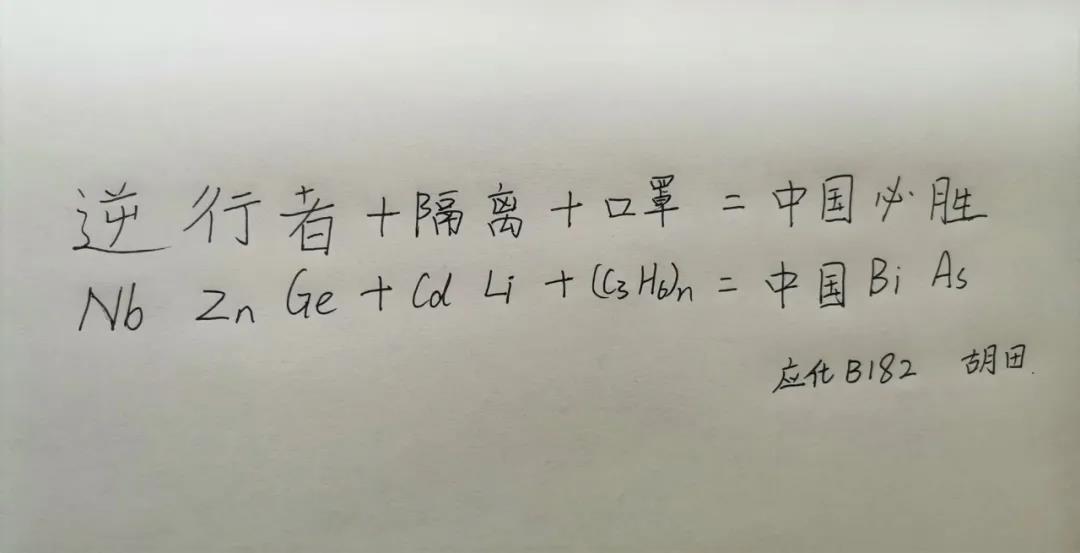 逆行者+隔离+口罩=中国必胜
Nb Zn Ge+Cd Li+(C3H6)n=中国Bi As
应化B182 胡田